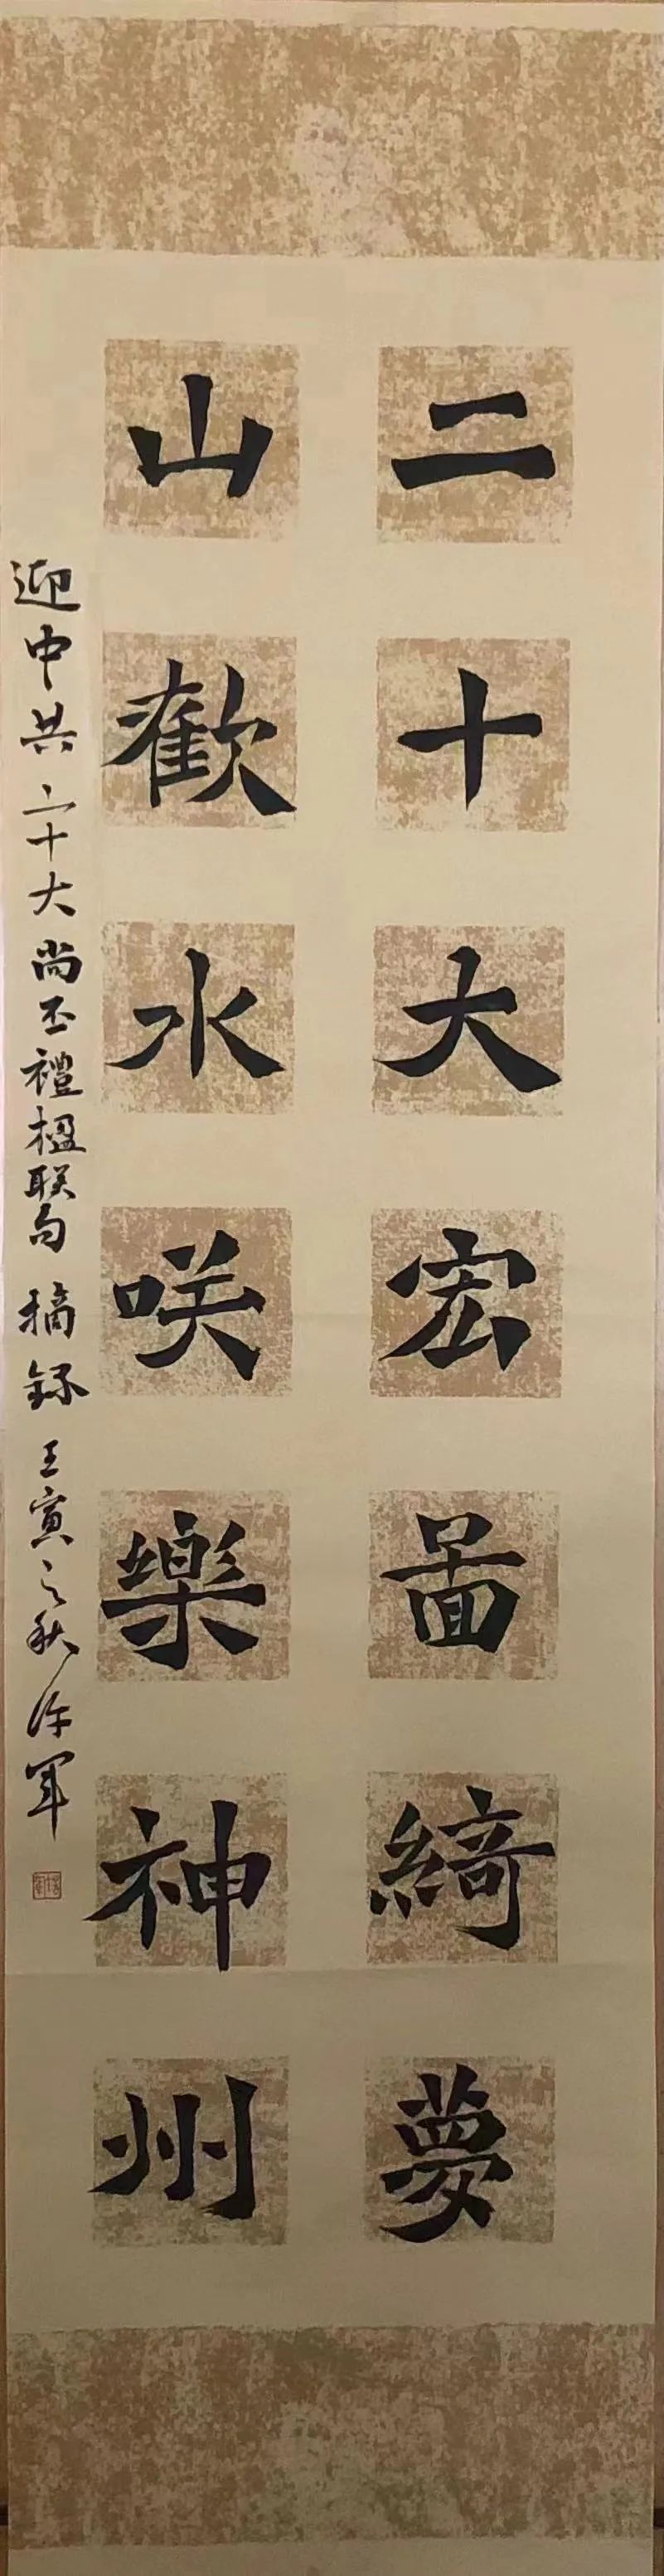 二十大宏啚綺夢
山歡水咲樂神州
迎中共二十大尚丕禮楹联句 摘録 壬寅之秋 徐军